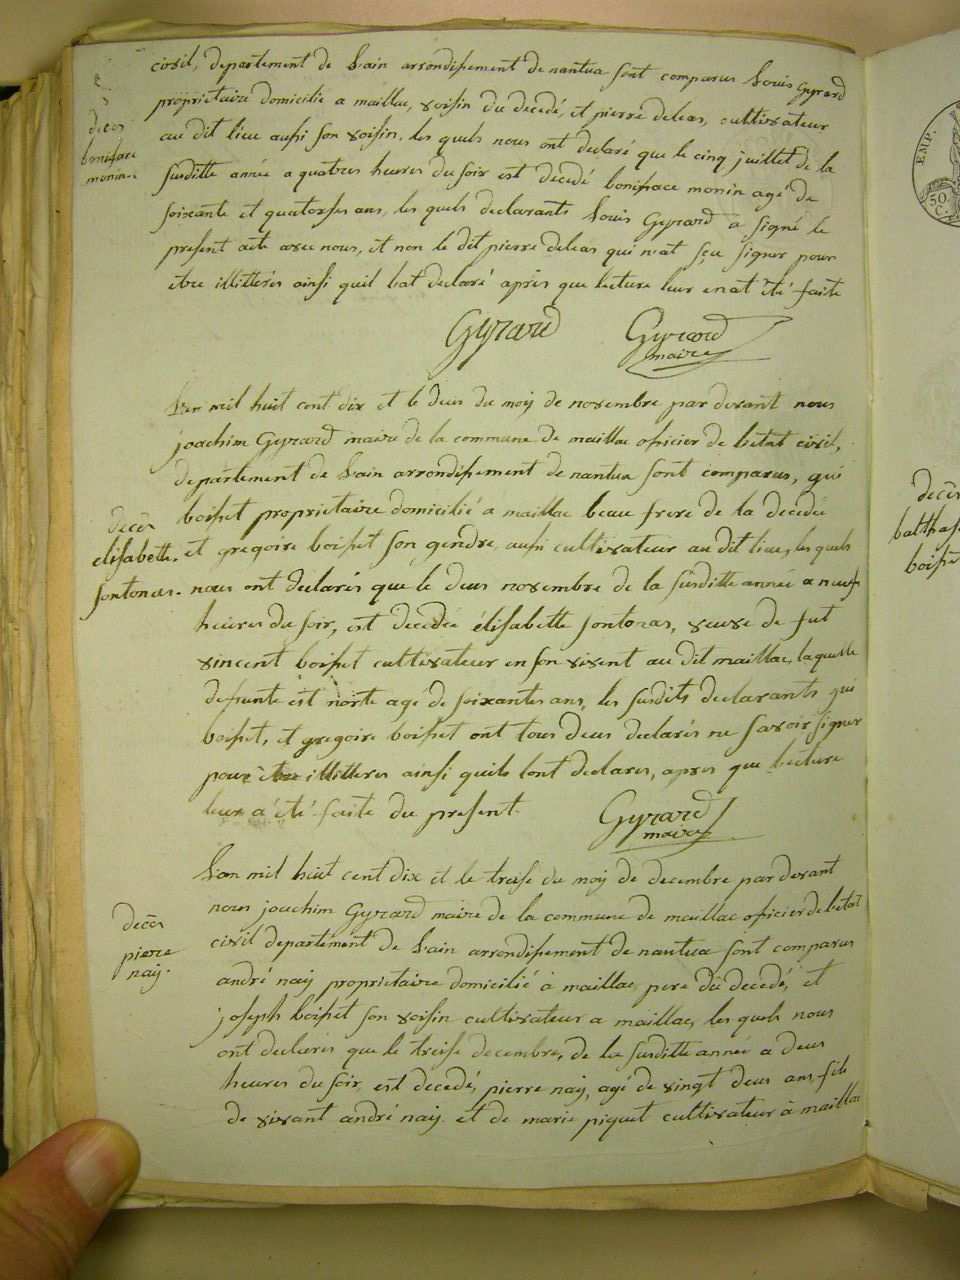 civil, departement de l'ain arrondissement de nantua sont comparus Louis Gyrard
propriétaire domicilié a maillac, voisin du decedé, et pierre deleas, cultivateur
au dit lieu aussi son voisin. les quels nous ont declaré que le cinq juillet de la
susditte année a quatres heures du soir est decedé boniface monin agé de
soixante et quatorses ans, les quels declarants Louis Gyrard a signé le
present acte avec nous, et non le dit pierre deleas qui n'at sçu signer pour
être illittéres ainsi quil lat declaré après que lecture leur en at été faite
deces
boniface
monin
Gyrard Gyrard
maire
L'an mil huit cent dix et le deus du moy de novembre par devant nous
joachim Gyrard maire de la commune de maillac officier de l'etat civil,
departement de l'ain arrondissement de nantua sont comparus, gui
boisset propriétaire domicilié a maillac beau frere de la decedée
et gregoire boisset son gendre, aussi cultivateur au dit lieu, les quels
nous ont declarés que le deus novembre de la susditte année a neuf
heures du soir, est decedée élisabette fontonas, veuve de fut
vincent boisset cultivateur en son vivent au dit maillac, laquelle
defunte est morte age de soixantes ans, les susdits declarants gui
boisset, et gregoire boisset ont tous deus declarés ne savoir signer
pour être illitteres ainsi quils lont declares, apres que lecture
leur a été faite du present.
deces
elisabette
fontonas.
Gyrard
maire
L'an mil huit cent dix et le treise du moy de decembre par devant
nous joachim Gyrard maire de la commune de maillac officier de l'etat
civil departement de l'ain arrondissement de nantua sont comparus
andré naÿ propriétaire domicilié à maillac, pere du decedé, et
joseph boisset son voisin cultivateur a maillac, les quels nous
ont declarés que le treise decembre, de la susditte année a deus
heures du soir, est decedé, pierre naÿ, agé de vingt deus ans, fils
de vivant andré naÿ et de marie piquet cultivateur à maillac
deces
pierre
naÿ.
EMP.
50
C.
deces
baltha
boisse